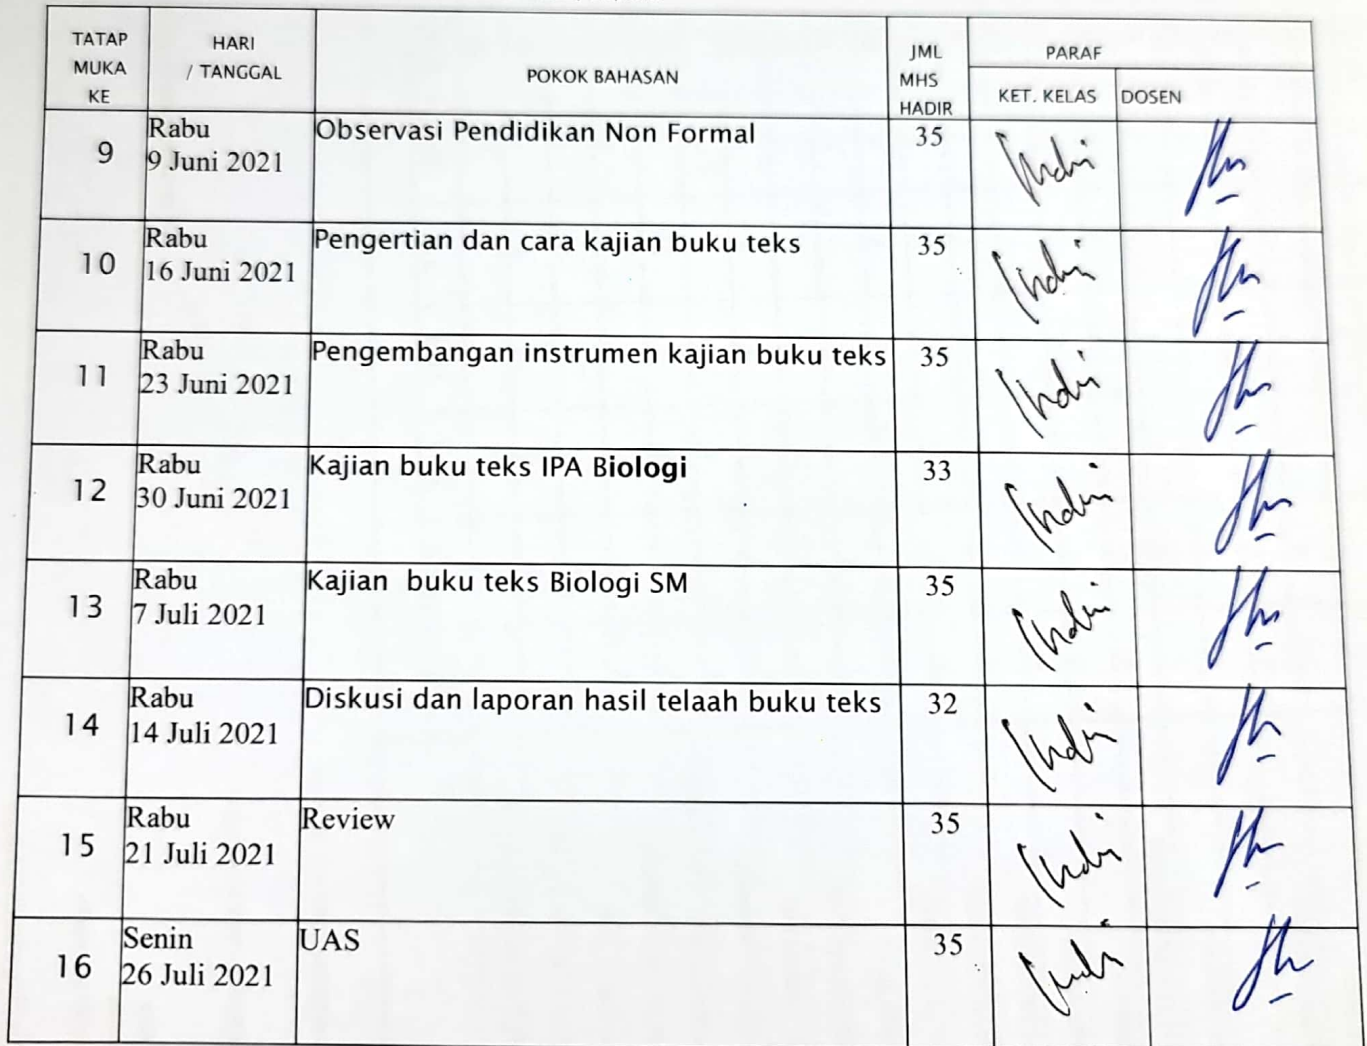 TATAP MUKA KE
HARI / TANGGAL
POKOK BAHASAN
JML MHS HADIR
PARAF
KET. KELAS
DOSEN
9
Rabu
9 Juni 2021
Observasi Pendidikan Non Formal
35
10
Rabu
16 Juni 2021
Pengertian dan cara kajian buku teks
35
11
Rabu
23 Juni 2021
Pengembangan instrumen kajian buku teks
35
12
Rabu
30 Juni 2021
Kajian buku teks IPA Biologi
33
13
Rabu
7 Juli 2021
Kajian  buku teks Biologi SM
35
14
Rabu
14 Juli 2021
Diskusi dan laporan hasil telaah buku teks
32
15
Rabu
21 Juli 2021
Review
35
16
Senin
26 Juli 2021
UAS
35